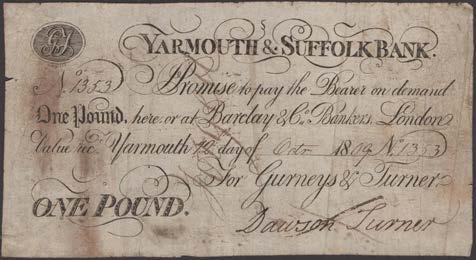 YARMOUTH & SUFFOLK BANK.
No. 1353 I Promise to pay the Bearer on demand
One Pound, here or at Barclay & Co. Bankers, London
Value recd. Yarmouth 12 day of Octr 1809 No. 1353
For Gurneys & Turner
ONE POUND. Dawson Turner